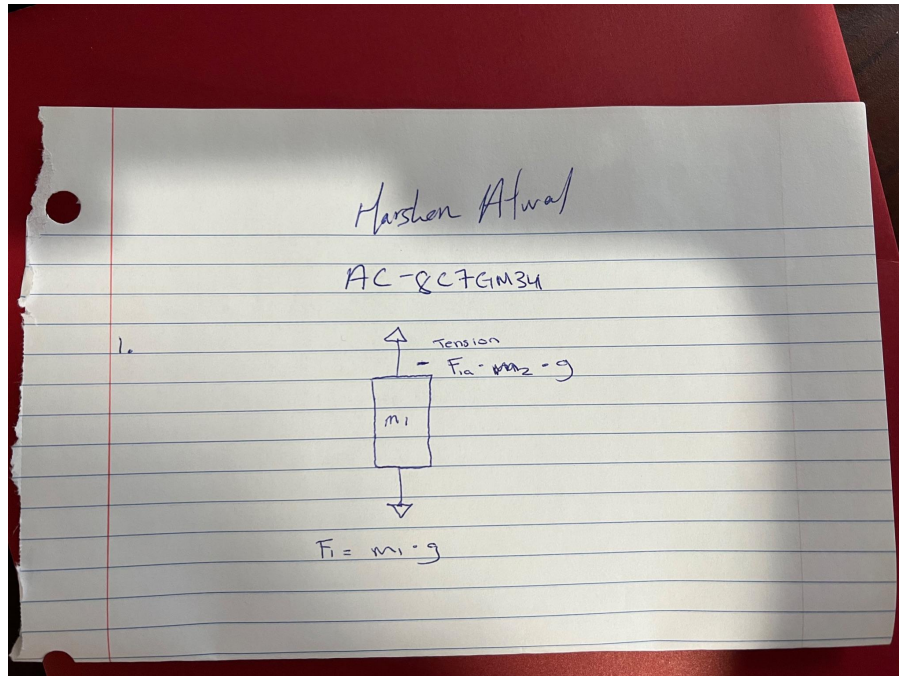 Harshen Atwal
AC-8C7GM34
1.
Tension
- F1a - m2 - g
m1
F1 = m1 · g